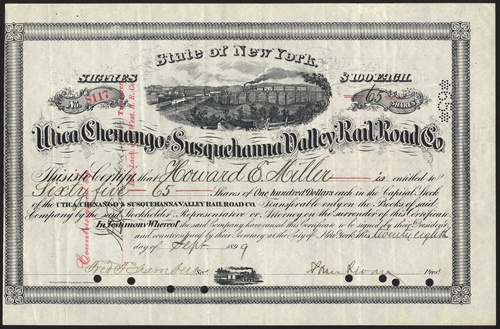 State of New York.
SHARES $100 EACH.
No. 8117 65 SHARES
Utica Chenango and Susquehanna Valley Rail Road Co.
This is to Certify, that Howard E. Miller is entitled to
Sixty five 65 Shares of One hundred Dollars each in the Capital Stock
of the UTICA, CHENANGO & SUSQUEHANNA VALLEY RAIL ROAD CO. Transferable only on the Books of said
Company by the said Stockholder, Representative or Attorney on the Surrender of this Certificate
In Testimony Whereof the said Company have caused this Certificate to be signed by their President
and countersigned by their Secretary at the City of New York this twenty eighth
day of Sept 1899
Fred F. Chambers Sec. Pres.